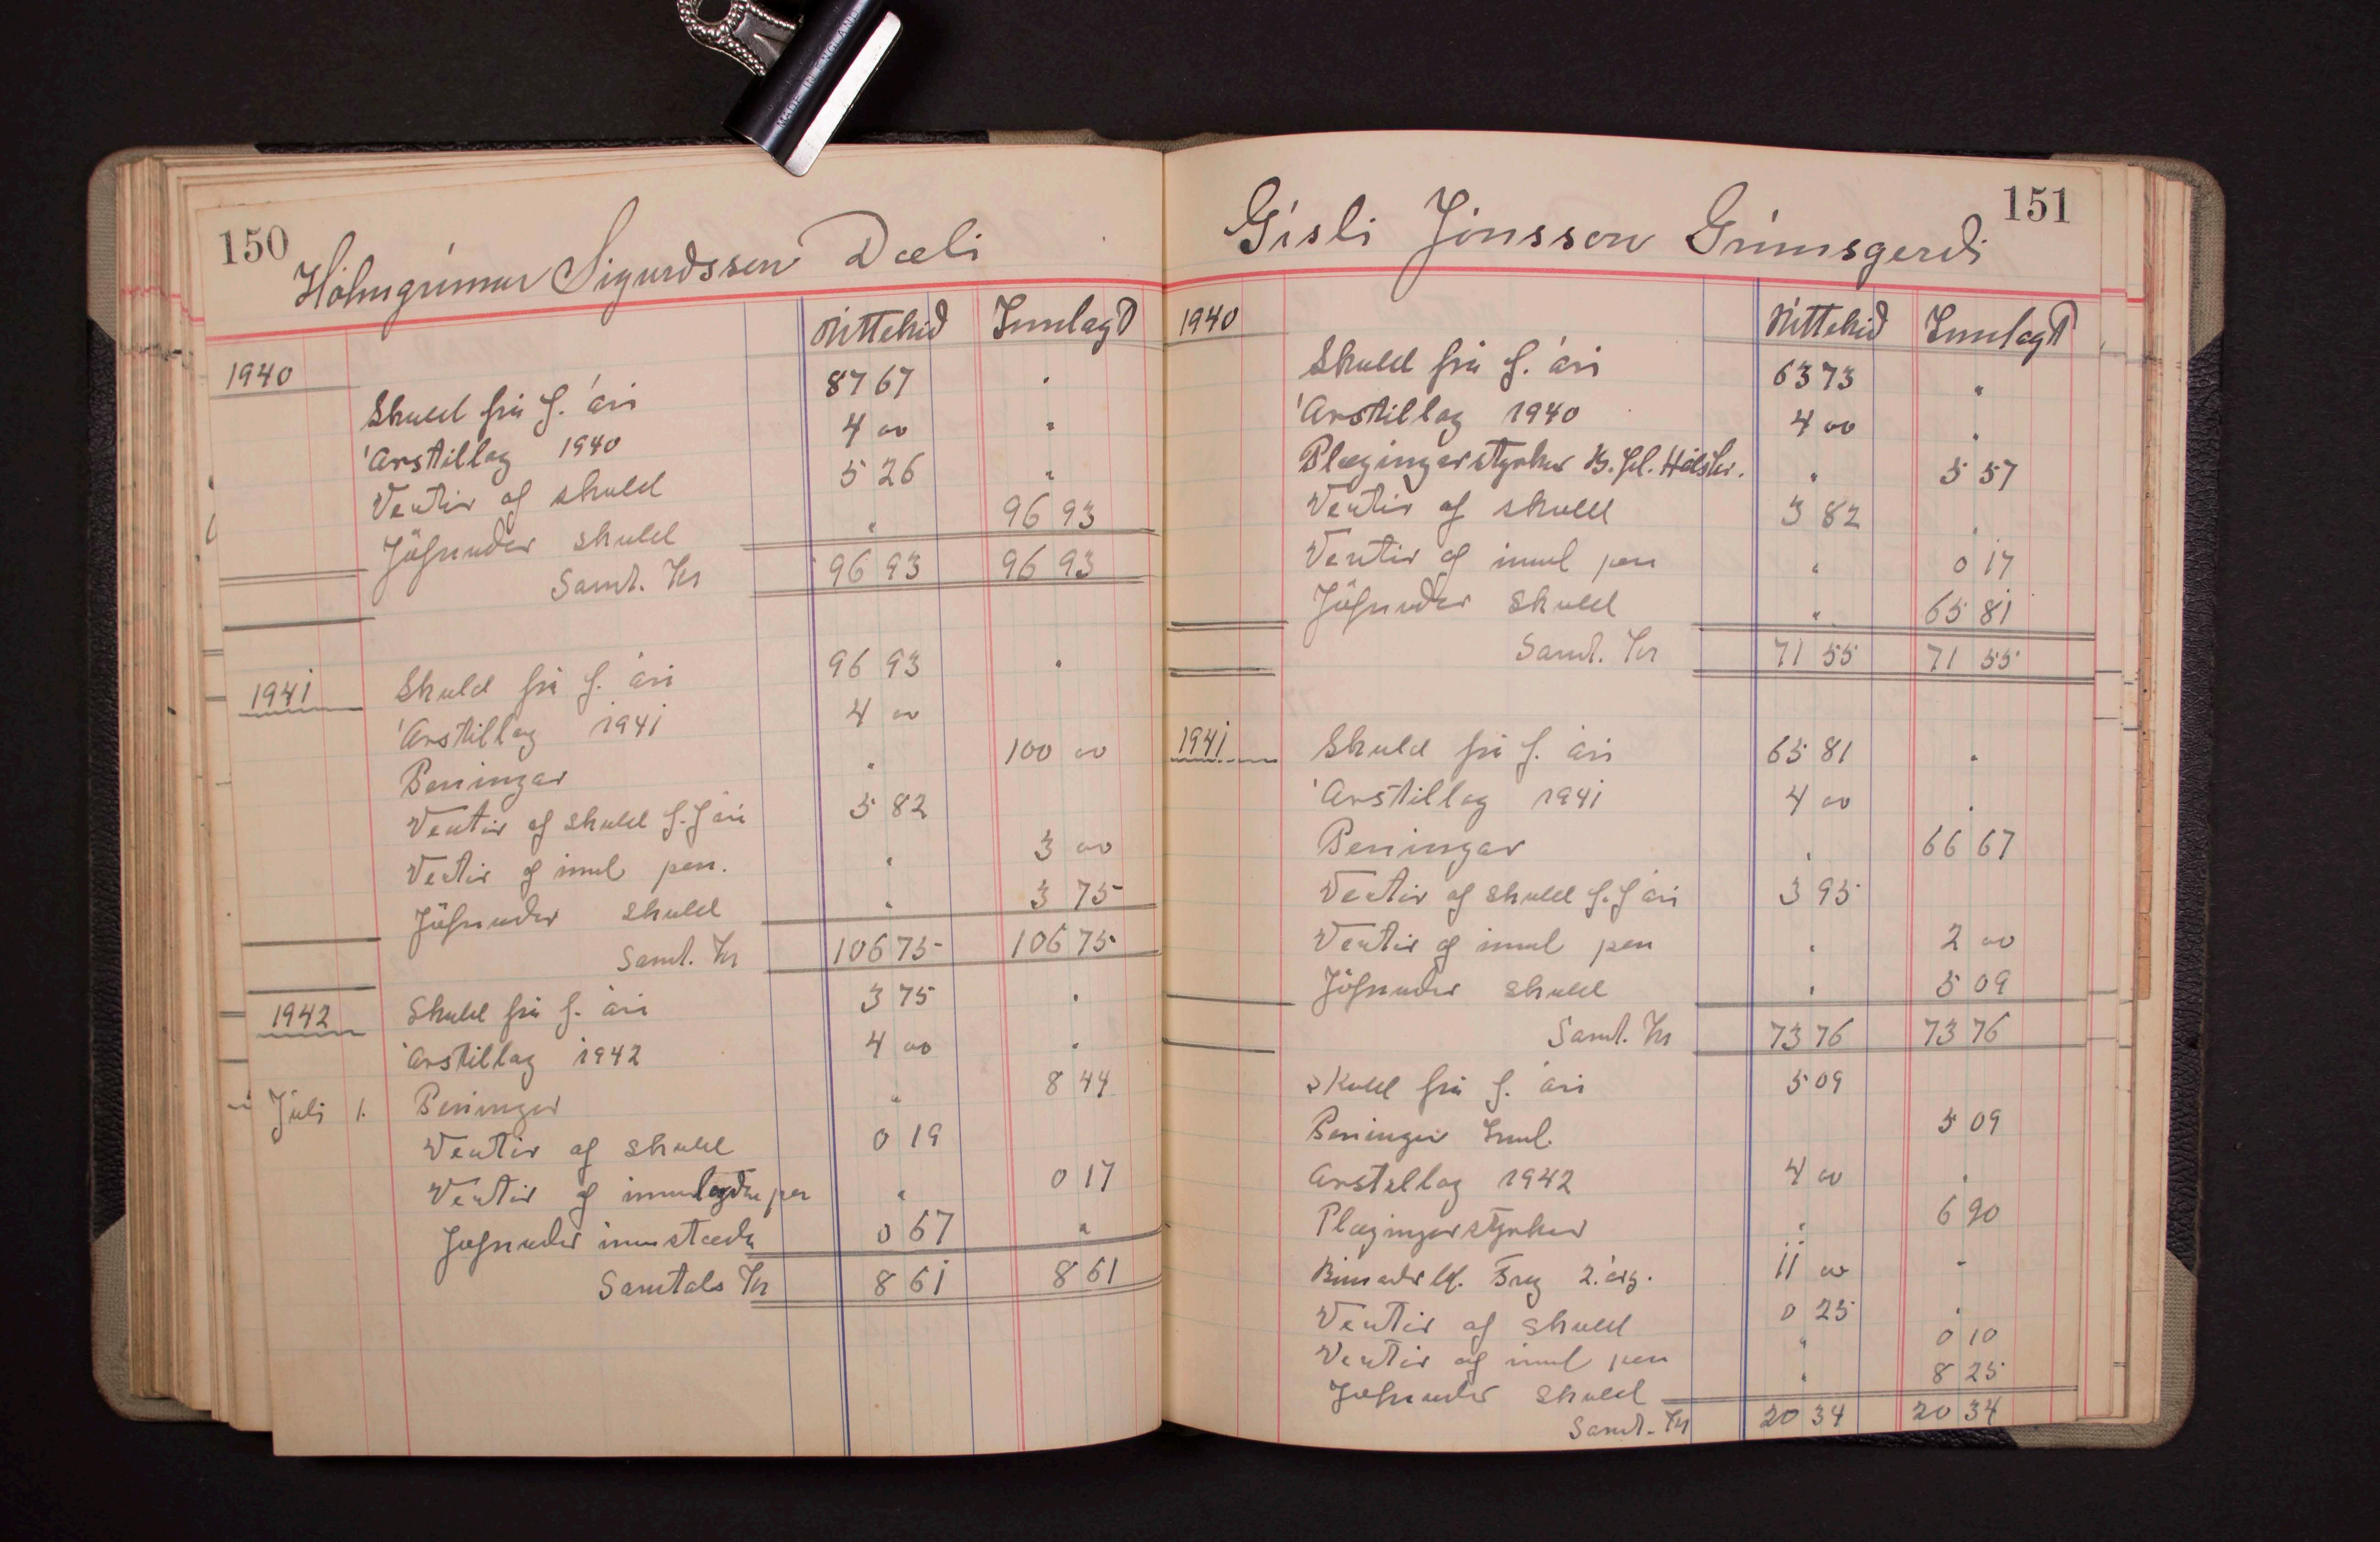 MADE IN ENGLAND
150
Hólmgrímur Sigurðsson Dæli
Úttekið Innlagt
1940
Skuld frá f. ári 87 67 "
Árstillag 1940 4 00 "
Vextir af skuld 5 26 "
Jöfnuður skuld " 96 93
Samt. Kr 96 93 96 93
1941 Skuld frá f. ári 96 93 "
Árstillag 1941 4 00
Peningar " 100 00
Vextir af skuld f. f ári 5 82
Vextir af innl pen. " 3 00
Jöfnuður skuld " 3 75
Samt. Kr 106 75 106 75
1942 Skuld frá f. ári 3 75 "
Árstillag 1942 4 00 "
Júlí 1. Peningar " 8 44
Vextir af skuld 0 19
Vextir af innlögðu pen " 0 17
Jöfnuður innstæða 0 67 "
Samtals Kr 8 61 8 61
151
Gísli Jónsson Grímsgerði
1940 Úttekið Innlagt
Skuld frá f. ári 63 73 "
Árstillag 1940 4 00 "
Plægingarstyrkur B. fél. Hálshr. " 5 57
Vextir af skuld 3 82 "
Vextir af innl pen " 0 17
Jöfnuður skuld " 65 81
Samt. Kr 71 55 71 55
1941 Skuld frá f. ári 65 81 "
Árstillag 1941 4 00 "
Peningar " 66 67
Vextir af skuld f. f ári 3 95
Vextir af innl pen " 2 00
Jöfnuður skuld " 5 09
Samt. Kr 73 76 73 76
Skuld frá f. ári 5 09
Peningar Innl. 5 09
Arstillag 1942 4 00 "
Plægingarstyrkur " 6 90
2. árg. 11 00 "
Vextir af skuld 0 25 "
Vextir af innl pen " 0 10
Jöfnuður skuld " 8 25
Samt. Kr 20 34 20 34